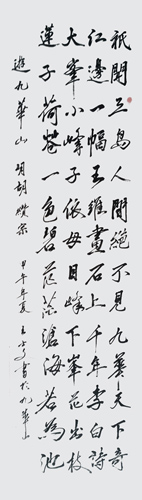 祇聞三島人間絕不見九華天下奇
江邊一幅王維畫石上千年李白詩
大峯小峰子依母目峰下峯花出枝
蓮子荷蒼一色碧茫茫滄海若為池
遊九華山 明胡纘宗 甲午年夏 王書於九華山